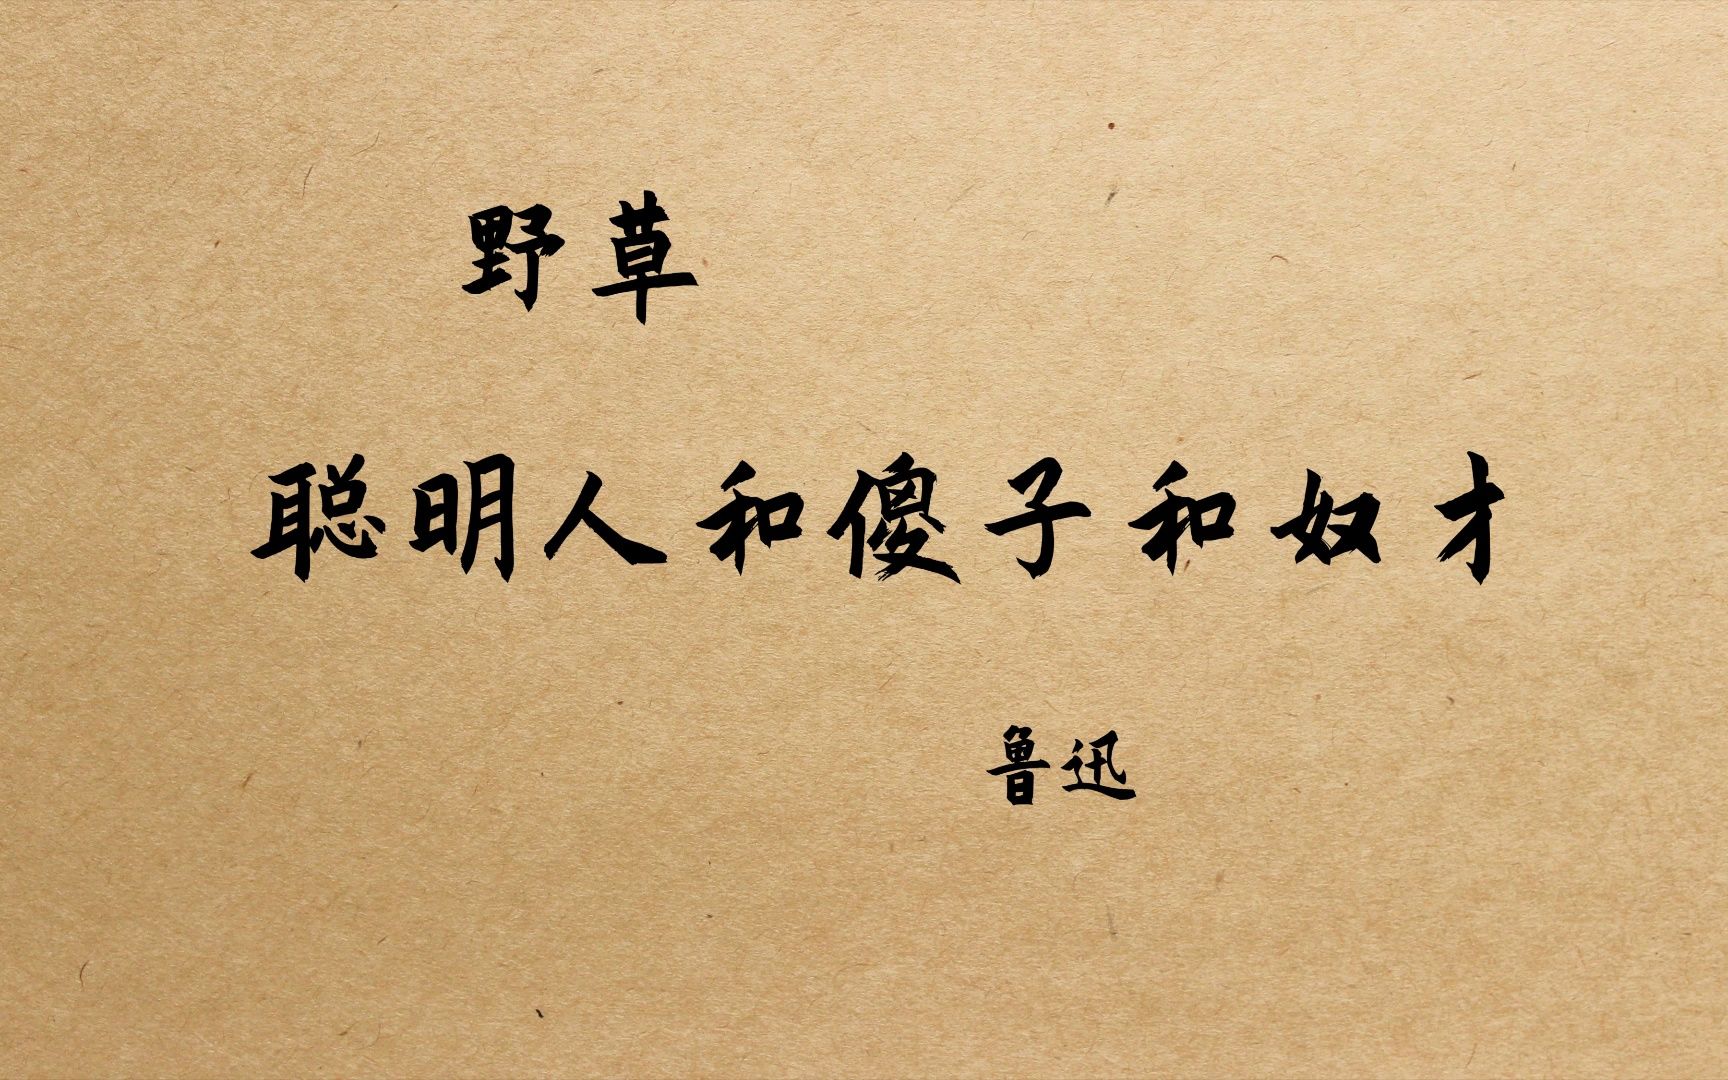 野草
聪明人和傻子和奴才
鲁迅